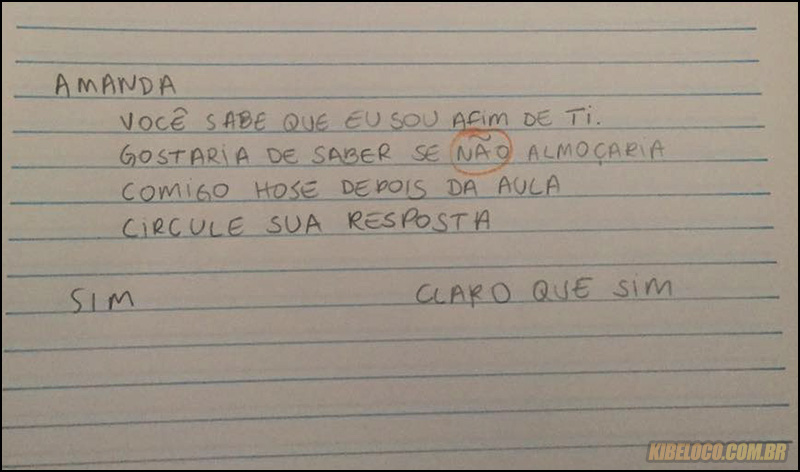 AMANDA
VOCÊ SABE QUE EU SOU AFIM DE TI.
GOSTARIA DE SABER SE NÃO ALMOÇARIA
COMIGO HOSE DEPOIS DA AULA
CIRCULE SUA RESPOSTA
SIM CLARO QUE SIM
KIBELOCO.COM.BR